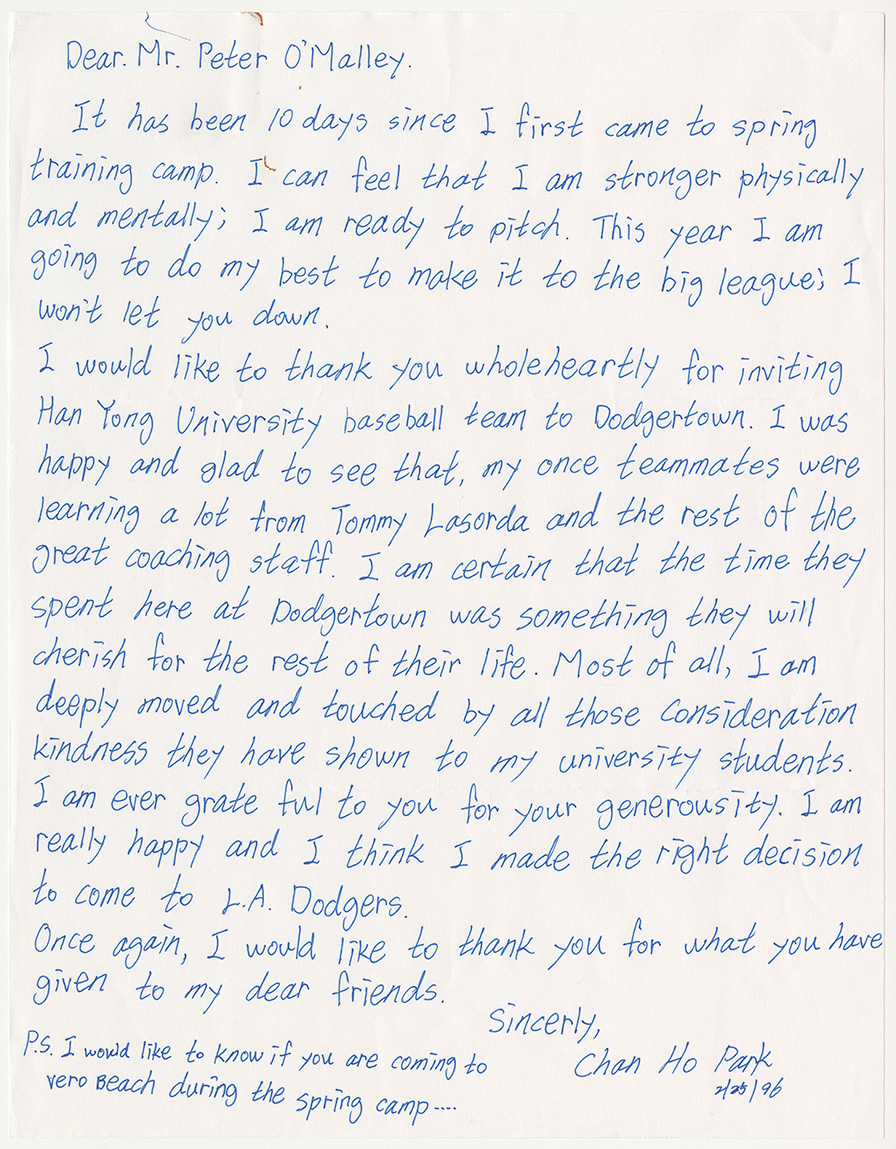 Dear. Mr. Peter O'Malley.
It has been 10 days since I first came to spring
training camp. I can feel that I am stronger physically
and mentally; I am ready to pitch. This year I am
going to do my best to make it to the big league; I
won't let you down.
I would like to thank you wholeheartly for inviting
Han Yong University baseball team to Dodgertown. I was
happy and glad to see that, my once teammates were
learning a lot from Tommy Lasorda and the rest of the
great coaching staff. I am certain that the time they
spent here at Dodgertown was something they will
cherish for the rest of their life. Most of all, I am
deeply moved and touched by all those consideration
kindness they have shown to my university students.
I am ever grate ful to you for your generousity. I am
really happy and I think I made the right decision
to come to L.A. Dodgers.
Once again, I would like to thank you for what you have
given to my dear friends.
Sincerly,
Chan Ho Park
2/25/96
P.S. I would like to know if you are coming to
Vero Beach during the spring camp....